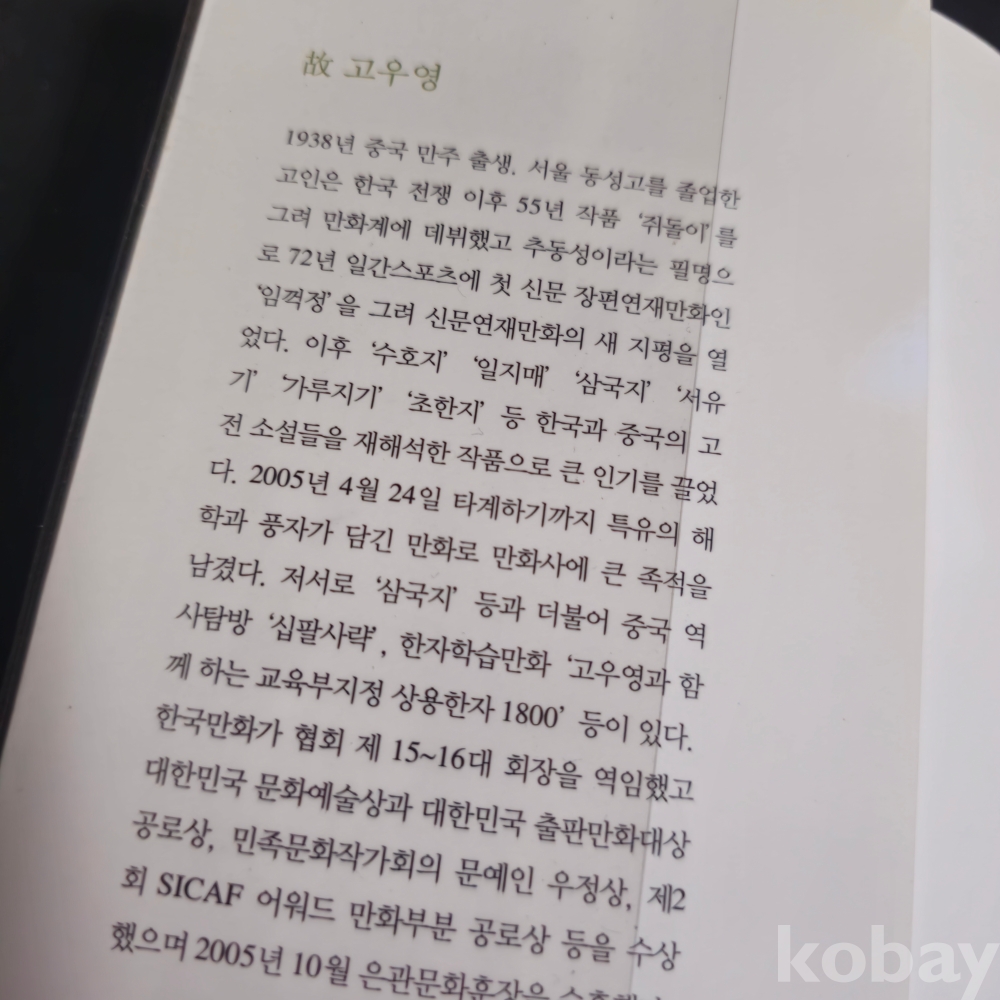 故 고우영
1938년 중국 만주 출생. 서울 동성고를 졸업한
고인은 한국 전쟁 이후 55년 작품 ‘쥐돌이’를
그려 만화계에 데뷔했고 추동성이라는 필명으
로 72년 일간스포츠에 첫 신문 장편연재만화인
‘임꺽정’을 그려 신문연재만화의 새 지평을 열
었다. 이후 ‘수호지’ ‘일지매’ ‘삼국지’ ‘서유
기’ ‘가루지기’ ‘초한지’ 등 한국과 중국의 고
전 소설들을 재해석한 작품으로 큰 인기를 끌었
다. 2005년 4월 24일 타계하기까지 특유의 해
학과 풍자가 담긴 만화로 만화사에 큰 족적을
남겼다. 저서로 ‘삼국지’ 등과 더불어 중국 역
사탐방 ‘십팔사략’, 한자학습만화 ‘고우영과 함
께 하는 교육부지정 상용한자 1800’ 등이 있다.
한국만화가 협회 제 15~16대 회장을 역임했고
대한민국 문화예술상과 대한민국 출판만화대상
공로상, 민족문화작가회의 문예인 우정상, 제2
회 SICAF 어워드 만화부분 공로상 등을 수상
했으며 2005년 10월 은관문화훈장을
kobay